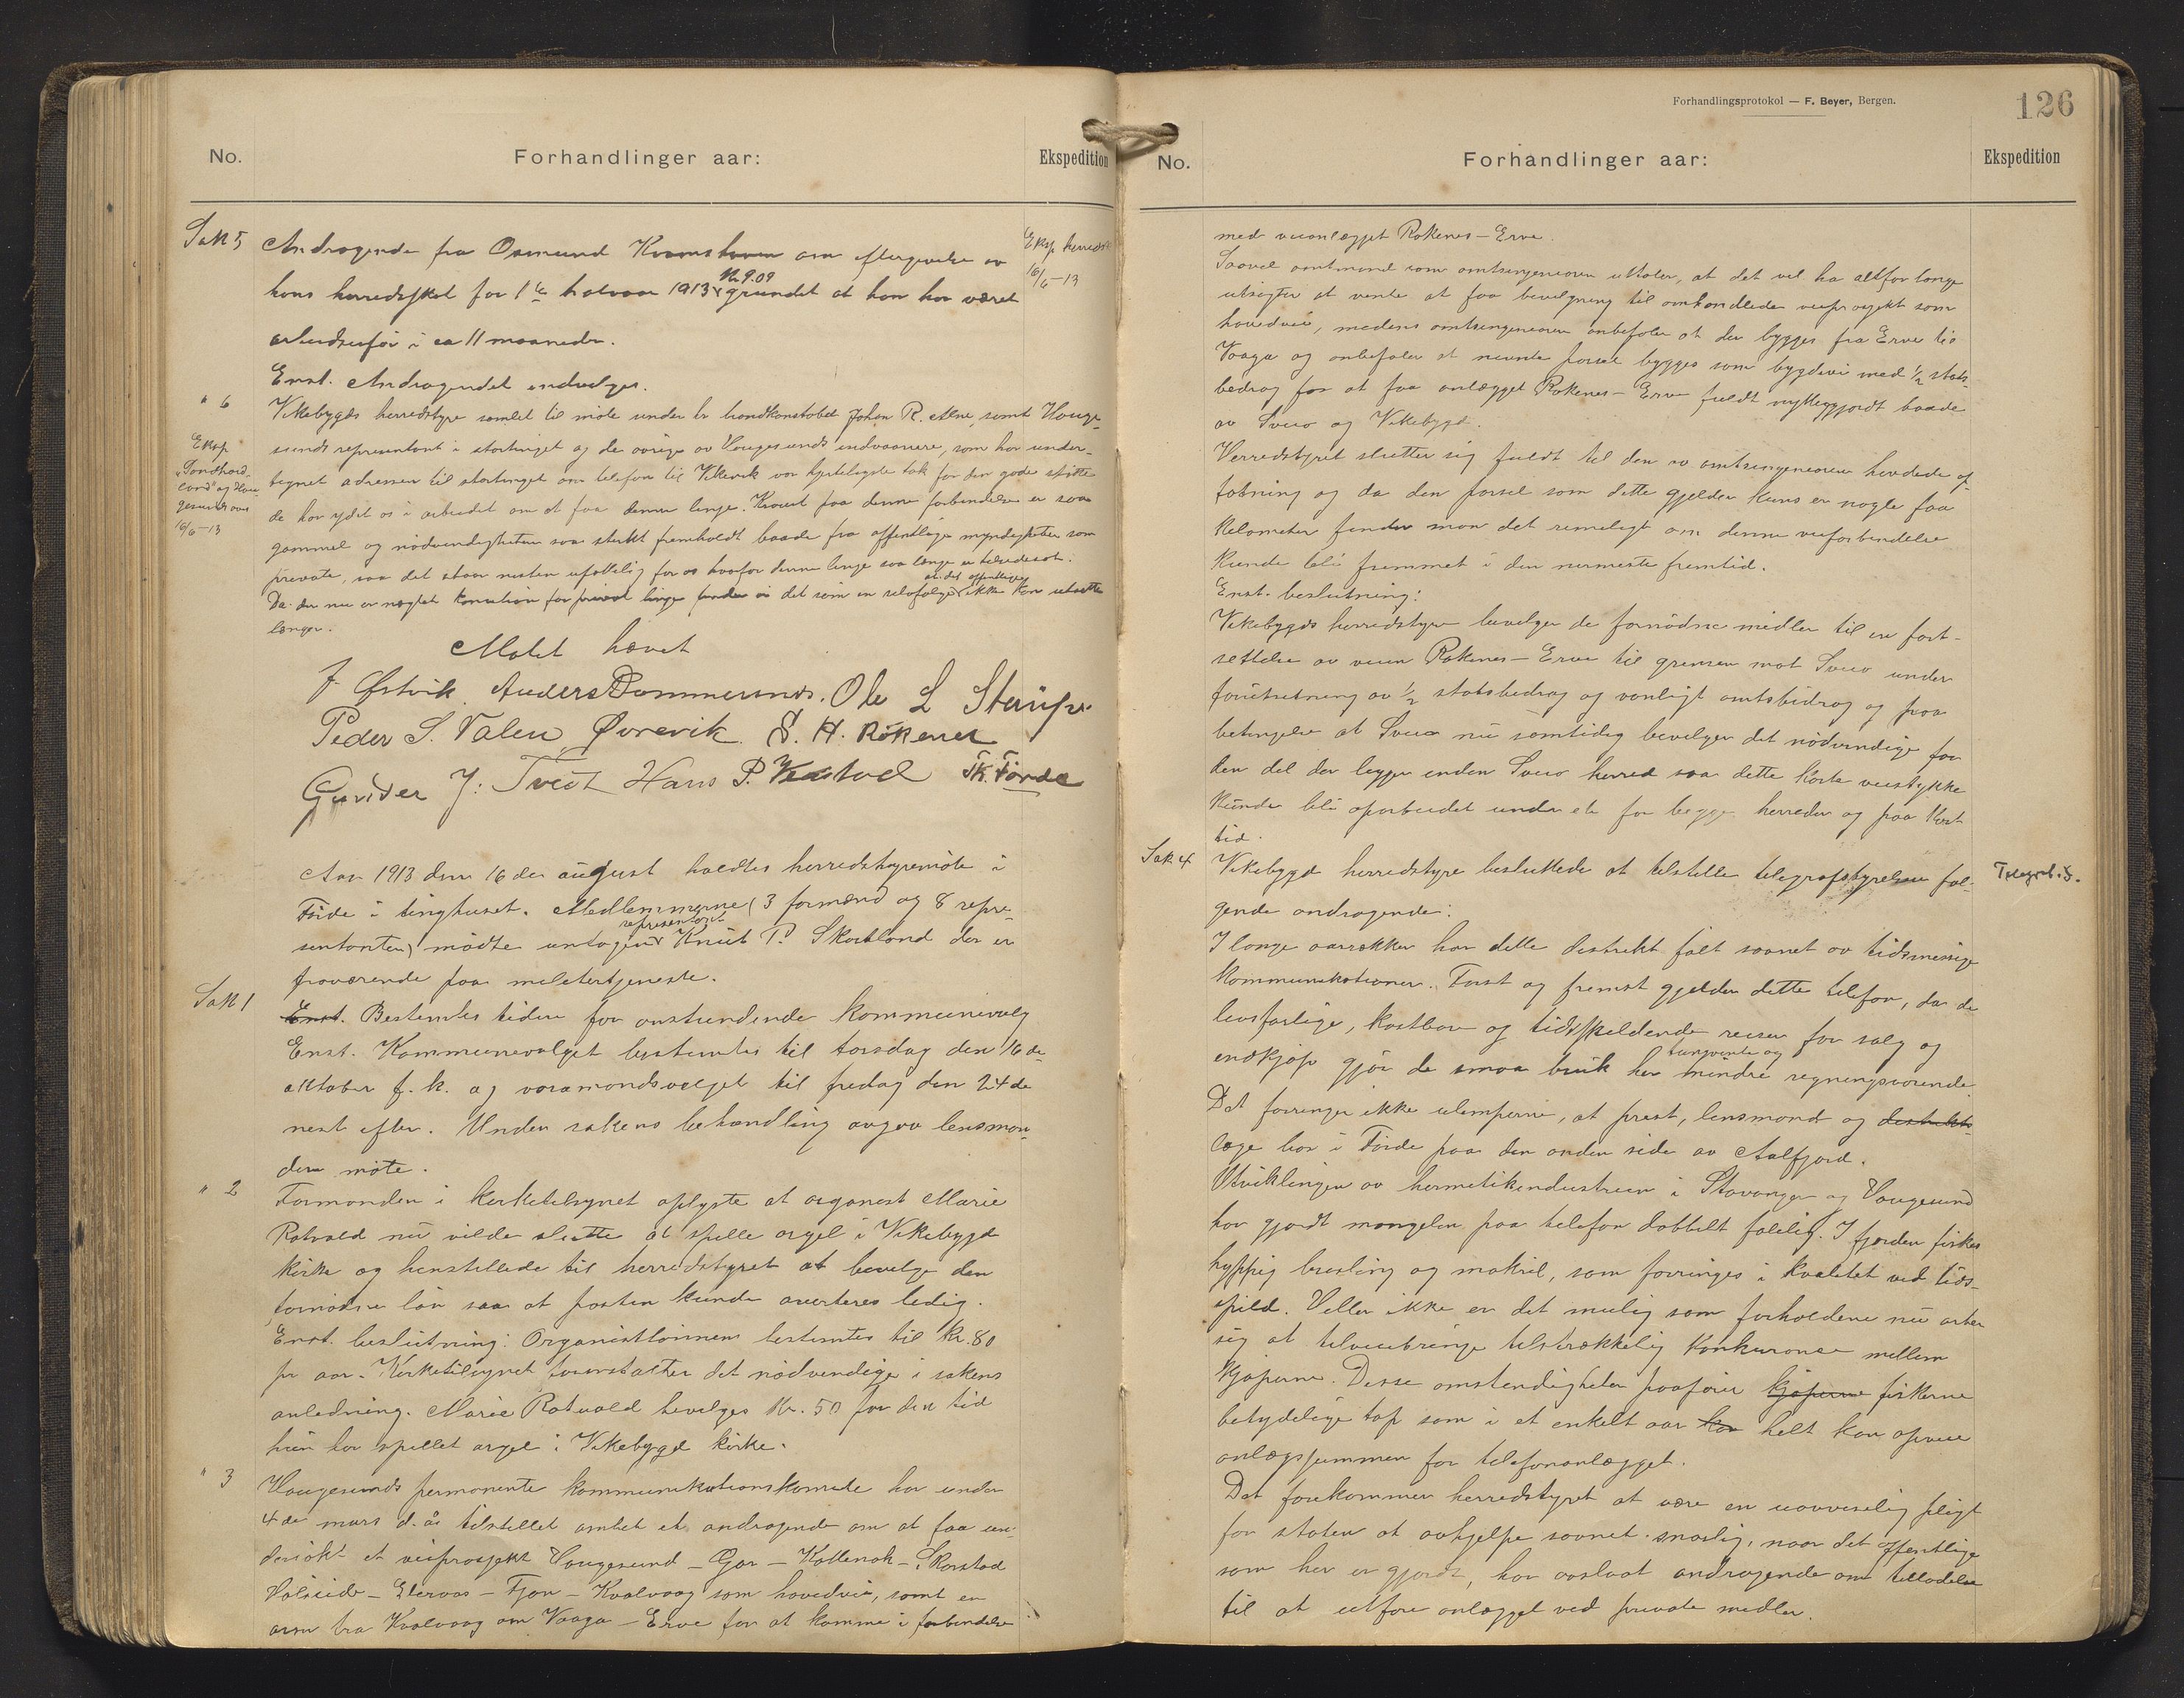 No.
Forhandlinger aar:
Ekspedition
Sak 5
Andragende fra Osmund Kvamshaven om eftergivelse av
Eksp herredsk
16/6-13
hans herredsskat for 1ste halvaar 1913 Kr. 9.09 grundet at han har været
arbeidsufør i ca 11 maaneder.
Enst. Andragendet indvilges.
" 6
Vikebygds herredstyre samlet til møte under hr haandkonstabel Johan R. Alne, samt Hauge-
Eksp
"Søndhord-
land" og Hau-
gesunds avis
16/6-13
sunds representant i stortinget og de øvrige av Haugesunds indvaanere, som har under-
tegnet adressen til stortinget om telefon til Vikevik vor hjerteligste tak for den gode støtte
de har ydet os i arbeidet om at faa denne linje. Kravet paa denne forbindelse er saa
gammel og nødvendigheten saa sterkt fremholdt baade fra offentlige myndigheter som
private, saa det staar næsten ufattelig for os hvorfor denne linje saa længe er tilsidesat.
Da der nu er nægtet konsesion for privat linje finder vi det som en selvfølge at det offentlige ikke kan utsætte
længer.
Møtet hævet
J Østvik. Anders Dommersnes. Ole L Stensp
Peder S. Valen Øvrevik S. H. Røkenes
Gunder J: Tveit Hans P. Vestad Tk. Førde
Aar 1913 den 16de august holdtes herredstyremøte i
Førde i tinghuset. Medlemmerne (3 formænd og 8 repre-
sentanter) mødte untagen representant Knut P. Skartland der er
fraværende paa militærtjeneste.
Sak 1
Enst. Bestemtes tiden for anstundende kommunevalg
Enst. Kommunevalget bestemtes til torsdag den 16de
oktober f. k. og voramandsvalget til fredag den 24de
nest efter. Under sakens behandling avgav lensman-
den møte.
" 2
Formanden i kirketilsynet oplyste at organist Marie
Rotvold nu vilde slutte at spille orgel i Vikebygd
kirke og henstillede til herredstyret at bevilge den
fornødne løn saa at posten kunde averteres ledig.
Enst. beslutning: Organistlønnen bestemtes til kr. 80
pr aar. Kirketilsynet foranstalter det nødvendige i sakens
anledning. Marie Rotvold bevilges kr. 50 for den tid
hun har spillet orgel i Vikebygd kirke.
" 3
Haugesunds permanente kommunikationskomite har under
4de mars d. å. tilstillet amtet et andragende om at faa un-
dersøkt et veiprosjekt Haugesund – Gar – Kallenok – Skarstad
Høiseide – Elervaas – Fjon – Kvalvaag som hovedvei, samt en
arm fra Kvalvaag om Vaaga – Erve for at komme i forbindelse
Forhandlingsprotokol — F. Beyer, Bergen.
126
No.
Forhandlinger aar:
Ekspedition
med veianlægget Røkenes – Erve.
Saavel amtmand som amtsingeniøren uttaler, at det vil ha altfor lange
utsigter at vente at faa bevilgning til omhandlede veiprosjekt som
hovedvei, medens amtsingeniøren anbefaler at der bygges fra Erve til
Vaaga og anbefaler at nevnte parsel bygges som bygdevei med 1/2 stats-
bedrag for at faa anlægget Røkenes – Erve fuldt nyttiggjordt baade
av Sveio og Vikebygd.
Herredstyret slutter sig fuldt til den av amtsingeniøren hevdede op-
fatning og da den parsel som dette gjelder kuns er nogle faa
kilometer finder man det rimeligt om denne veiforbindelse
kunde bli fremmet i den nærmeste fremtid.
Enst. beslutning:
Vikebygds herredstyre bevilger de fornødne midler til en fort-
settelse av veien Røkenes – Erve til grensen mot Sveio under
forutsetning av 1/2 statsbedrag og vanligt amtsbidrag og paa
betingelse at Sveio nu samtidig bevilger det nødvendige for
den del der ligger inden Sveio herred saa dette korte veistykke
kunde bli oparbeidet under et for begge herreder og paa kort
tid.
Sak 4
Vikebygd herredstyre besluttede at tilstille telegrafstyrelsen føl-
Telegraf.s.
gende andragende:
I lange aarrækker har dette distrikt følt savnet av tidsmessige
kommunikationer. Først og fremst gjelder dette telefon, da de
livsfarlige, kostbare og tidsspildende reiser for salg og
indkjøp gjør de smaa bruk her tungvinte og mindre regningsvarende.
Det forringer ikke ulemperne, at prest, lensmand og distrikts
læge bor i Førde paa den anden side av Aalfjord.
Utviklingen av hermetikindustrien i Stavanger og Haugesund
har gjordt mangelen paa telefon dobbelt følelig. I fjorden fiskes
hyppig brisling og makrel, som forringes i kvalitet ved tids-
spild. Heller ikke er det mulig som forholdene nu arter
sig at tilveiebringe tilstrækkelig konkuranse mellem
kjøperne. Disse omstendigheter paafører kjøperne fiskerne
betydelige tap som i et enkelt aar kan helt kan opveie
anlægssummen for telefonanlægget.
Det forekommer herredstyret at være en uavviselig pligt
for staten at avhjelpe savnet snarlig, naar det offentlige
som her er gjordt, har avslaat andragende om tilladelse
til at utføre anlægget ved private midler.